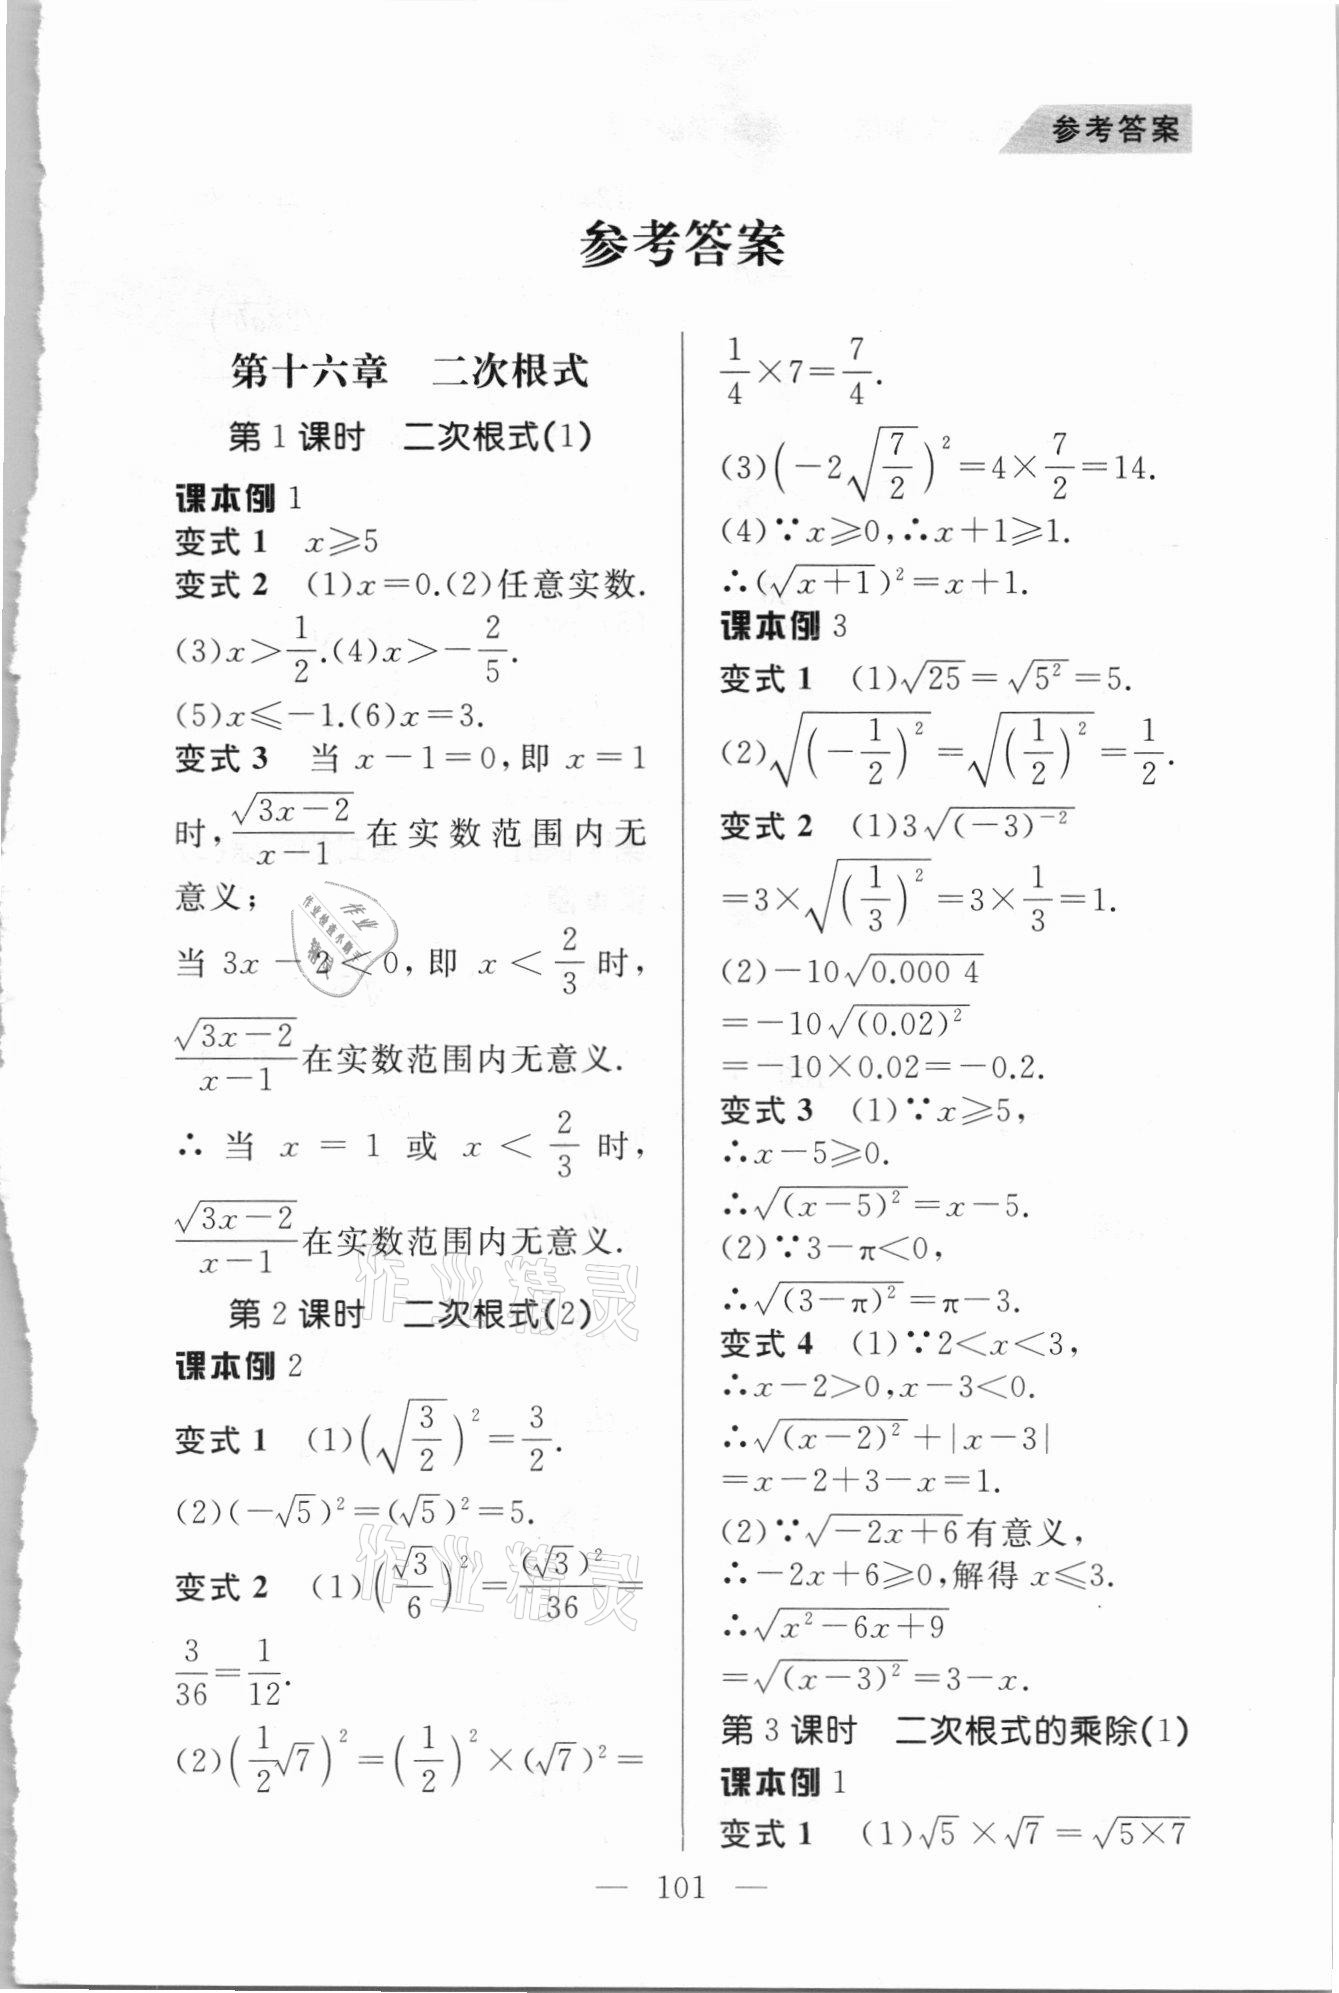 参考答案
参考答案
第十六章 二次根式
第1课时 二次根式(1)
课本例1
变式1 x≥5
变式2 (1)x=0.(2)任意实数.
(3)x>1/2.(4)x>-2/5.
(5)x≤-1.(6)x=3.
变式3 当x-1=0,即x=1
时,√(3x-2)/(x-1)在实数范围内无
意义;
当3x-2<0,即x<2/3时,
√(3x-2)/(x-1)在实数范围内无意义.
∴当x=1或x<2/3时,
√(3x-2)/(x-1)在实数范围内无意义.
第2课时 二次根式(2)
课本例2
变式1 (1)(√(3/2))²=3/2.
(2)(-√5)²=(√5)²=5.
变式2 (1)(√3/6)²=(√3)²/36=
3/36=1/12.
(2)(1/2√7)²=(1/2)²×(√7)²=
1/4×7=7/4.
(3)(-2√(7/2))²=4×7/2=14.
(4)∵x≥0,∴x+1≥1.
∴(√(x+1))²=x+1.
课本例3
变式1 (1)√25=√(5²)=5.
(2)√((-1/2)²)=√((1/2)²)=1/2.
变式2 (1)3√((-3)⁻²)
=3×√((1/3)²)=3×1/3=1.
(2)-10√(0.000 4)
=-10√((0.02)²)
=-10×0.02=-0.2.
变式3 (1)∵x≥5,
∴x-5≥0.
∴√((x-5)²)=x-5.
(2)∵3-π<0,
∴√((3-π)²)=π-3.
变式4 (1)∵2<x<3,
∴x-2>0,x-3<0.
∴√((x-2)²)+|x-3|
=x-2+3-x=1.
(2)∵√(-2x+6)有意义,
∴-2x+6≥0,解得x≤3.
∴√(x²-6x+9)
=√((x-3)²)=3-x.
第3课时 二次根式的乘除(1)
课本例1
变式1 (1)√5×√7=√(5×7)
— 101 —
作业精灵
作业精灵